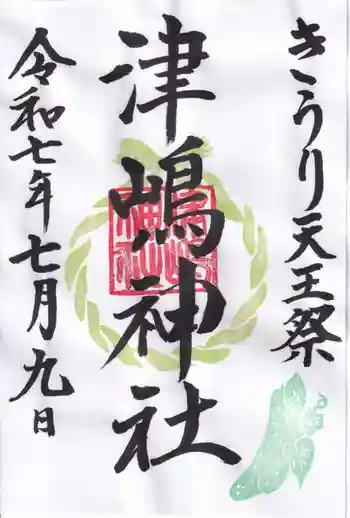 きうり天王祭
津嶋神社
令和七年七月九日